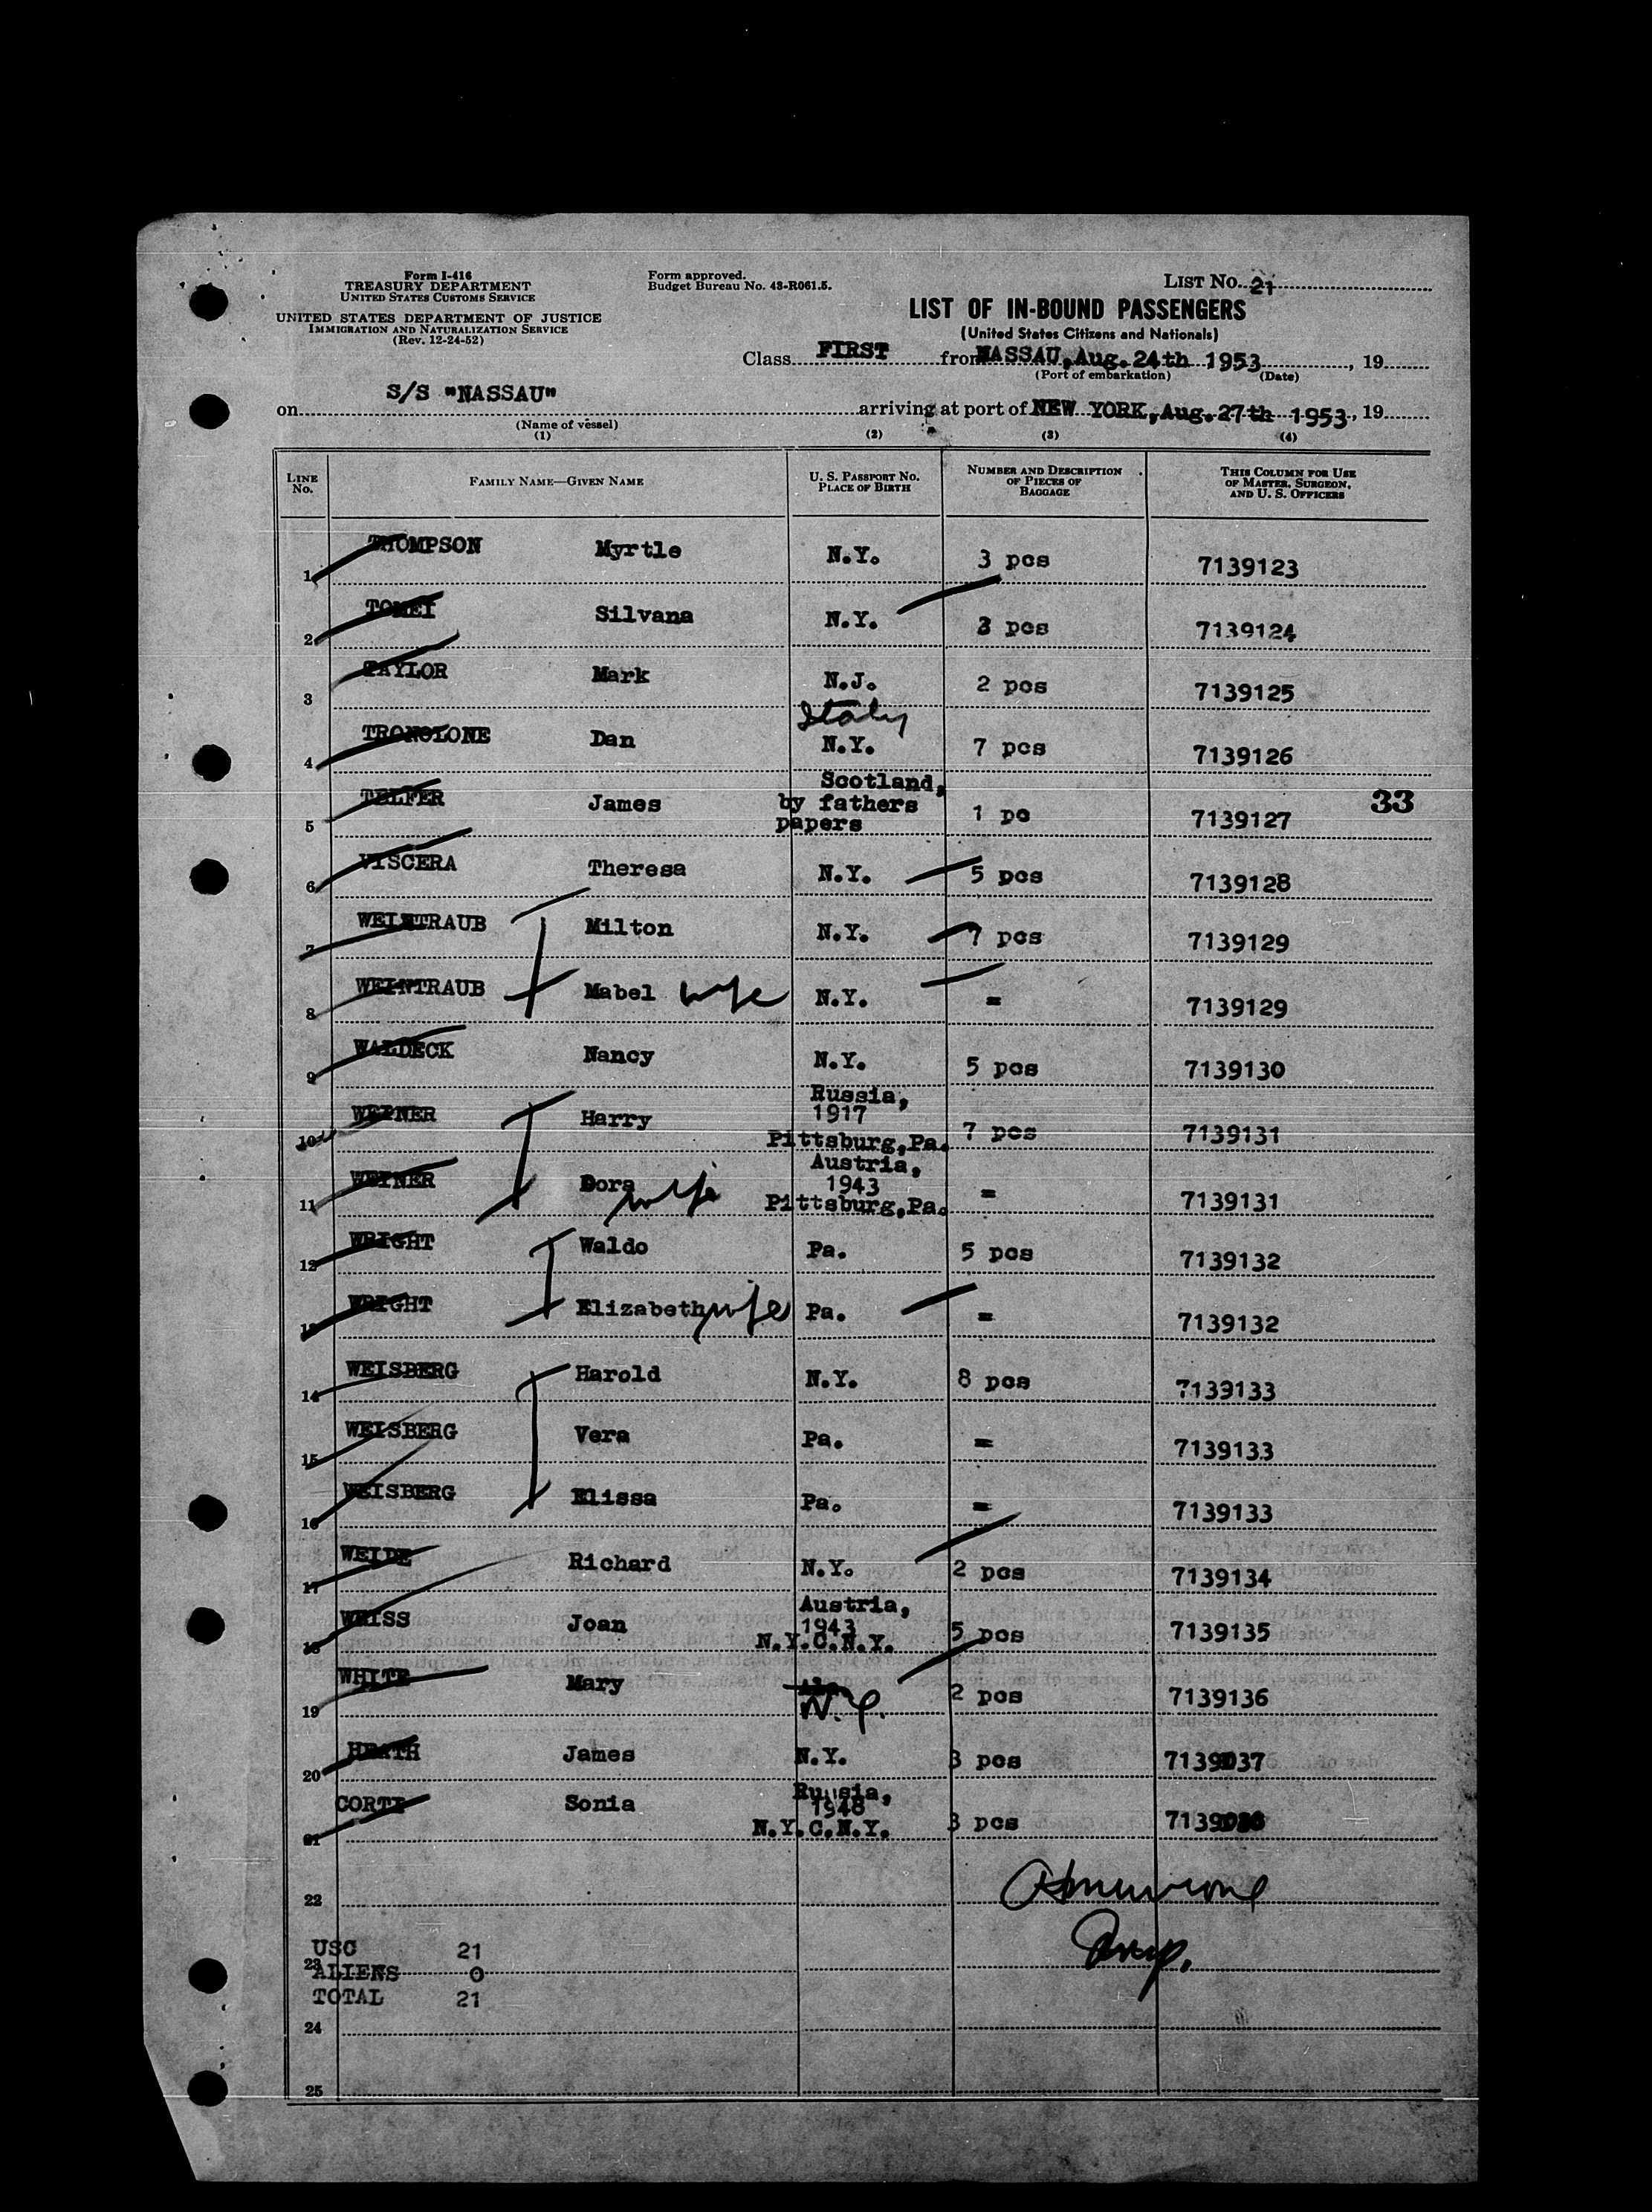 Form I-416
TREASURY DEPARTMENT
UNITED STATES CUSTOMS SERVICE
UNITED STATES DEPARTMENT OF JUSTICE
IMMIGRATION AND NATURALIZATION SERVICE
(Rev. 12-24-52)
Form approved.
Budget Bureau No. 43-R061.5.
LIST No. 21
LIST OF IN-BOUND PASSENGERS
(United States Citizens and Nationals)
Class FIRST from NASSAU, Aug. 24th 1953, 19
(Port of embarkation) (Date)
on S/S "NASSAU" arriving at port of NEW YORK, Aug. 27th 1953, 19
(Name of vessel)
(1) (2) (3) (4)
LINE No. FAMILY NAME—GIVEN NAME U. S. PASSPORT No. PLACE OF BIRTH NUMBER AND DESCRIPTION OF PIECES OF BAGGAGE THIS COLUMN FOR USE OF MASTER, SURGEON, AND U. S. OFFICERS
1 THOMPSON Myrtle N.Y. 3 pcs 7139123
2 TOMEI Silvana N.Y. 3 pcs 7139124
3 TAYLOR Mark N.J. 2 pcs 7139125
Italy
4 TRONOLONE Dan N.Y. 7 pcs 7139126
5 TELFER James Scotland, by fathers papers 1 pc 7139127
33
6 VISCERA Theresa N.Y. 5 pcs 7139128
7 WEINTRAUB Milton N.Y. 7 pcs 7139129
8 WEINTRAUB Mabel wife N.Y. = 7139129
9 WALDECK Nancy N.Y. 5 pcs 7139130
10 WEINER Harry Russia, 1917 Pittsburg,Pa. 7 pcs 7139131
11 WEINER Dora wife Austria, 1943 Pittsburg,Pa. = 7139131
12 WRIGHT Waldo Pa. 5 pcs 7139132
13 WRIGHT Elizabeth wife Pa. = 7139132
14 WEISBERG Harold N.Y. 8 pcs 7139133
15 WEISBERG Vera Pa. = 7139133
16 WEISBERG Elissa Pa. = 7139133
17 WEIDE Richard N.Y. 2 pcs 7139134
18 WEISS Joan Austria, 1943 N.Y.C.N.Y. 5 pcs 7139135
19 WHITE Mary N.Y. 2 pcs 7139136
20 HEATH James N.Y. 3 pcs 7139037
21 CORTE Sonia Russia, 1948 N.Y.C.N.Y. 3 pcs
22
USC 21
23
ALIENS 0
TOTAL 21
24
25